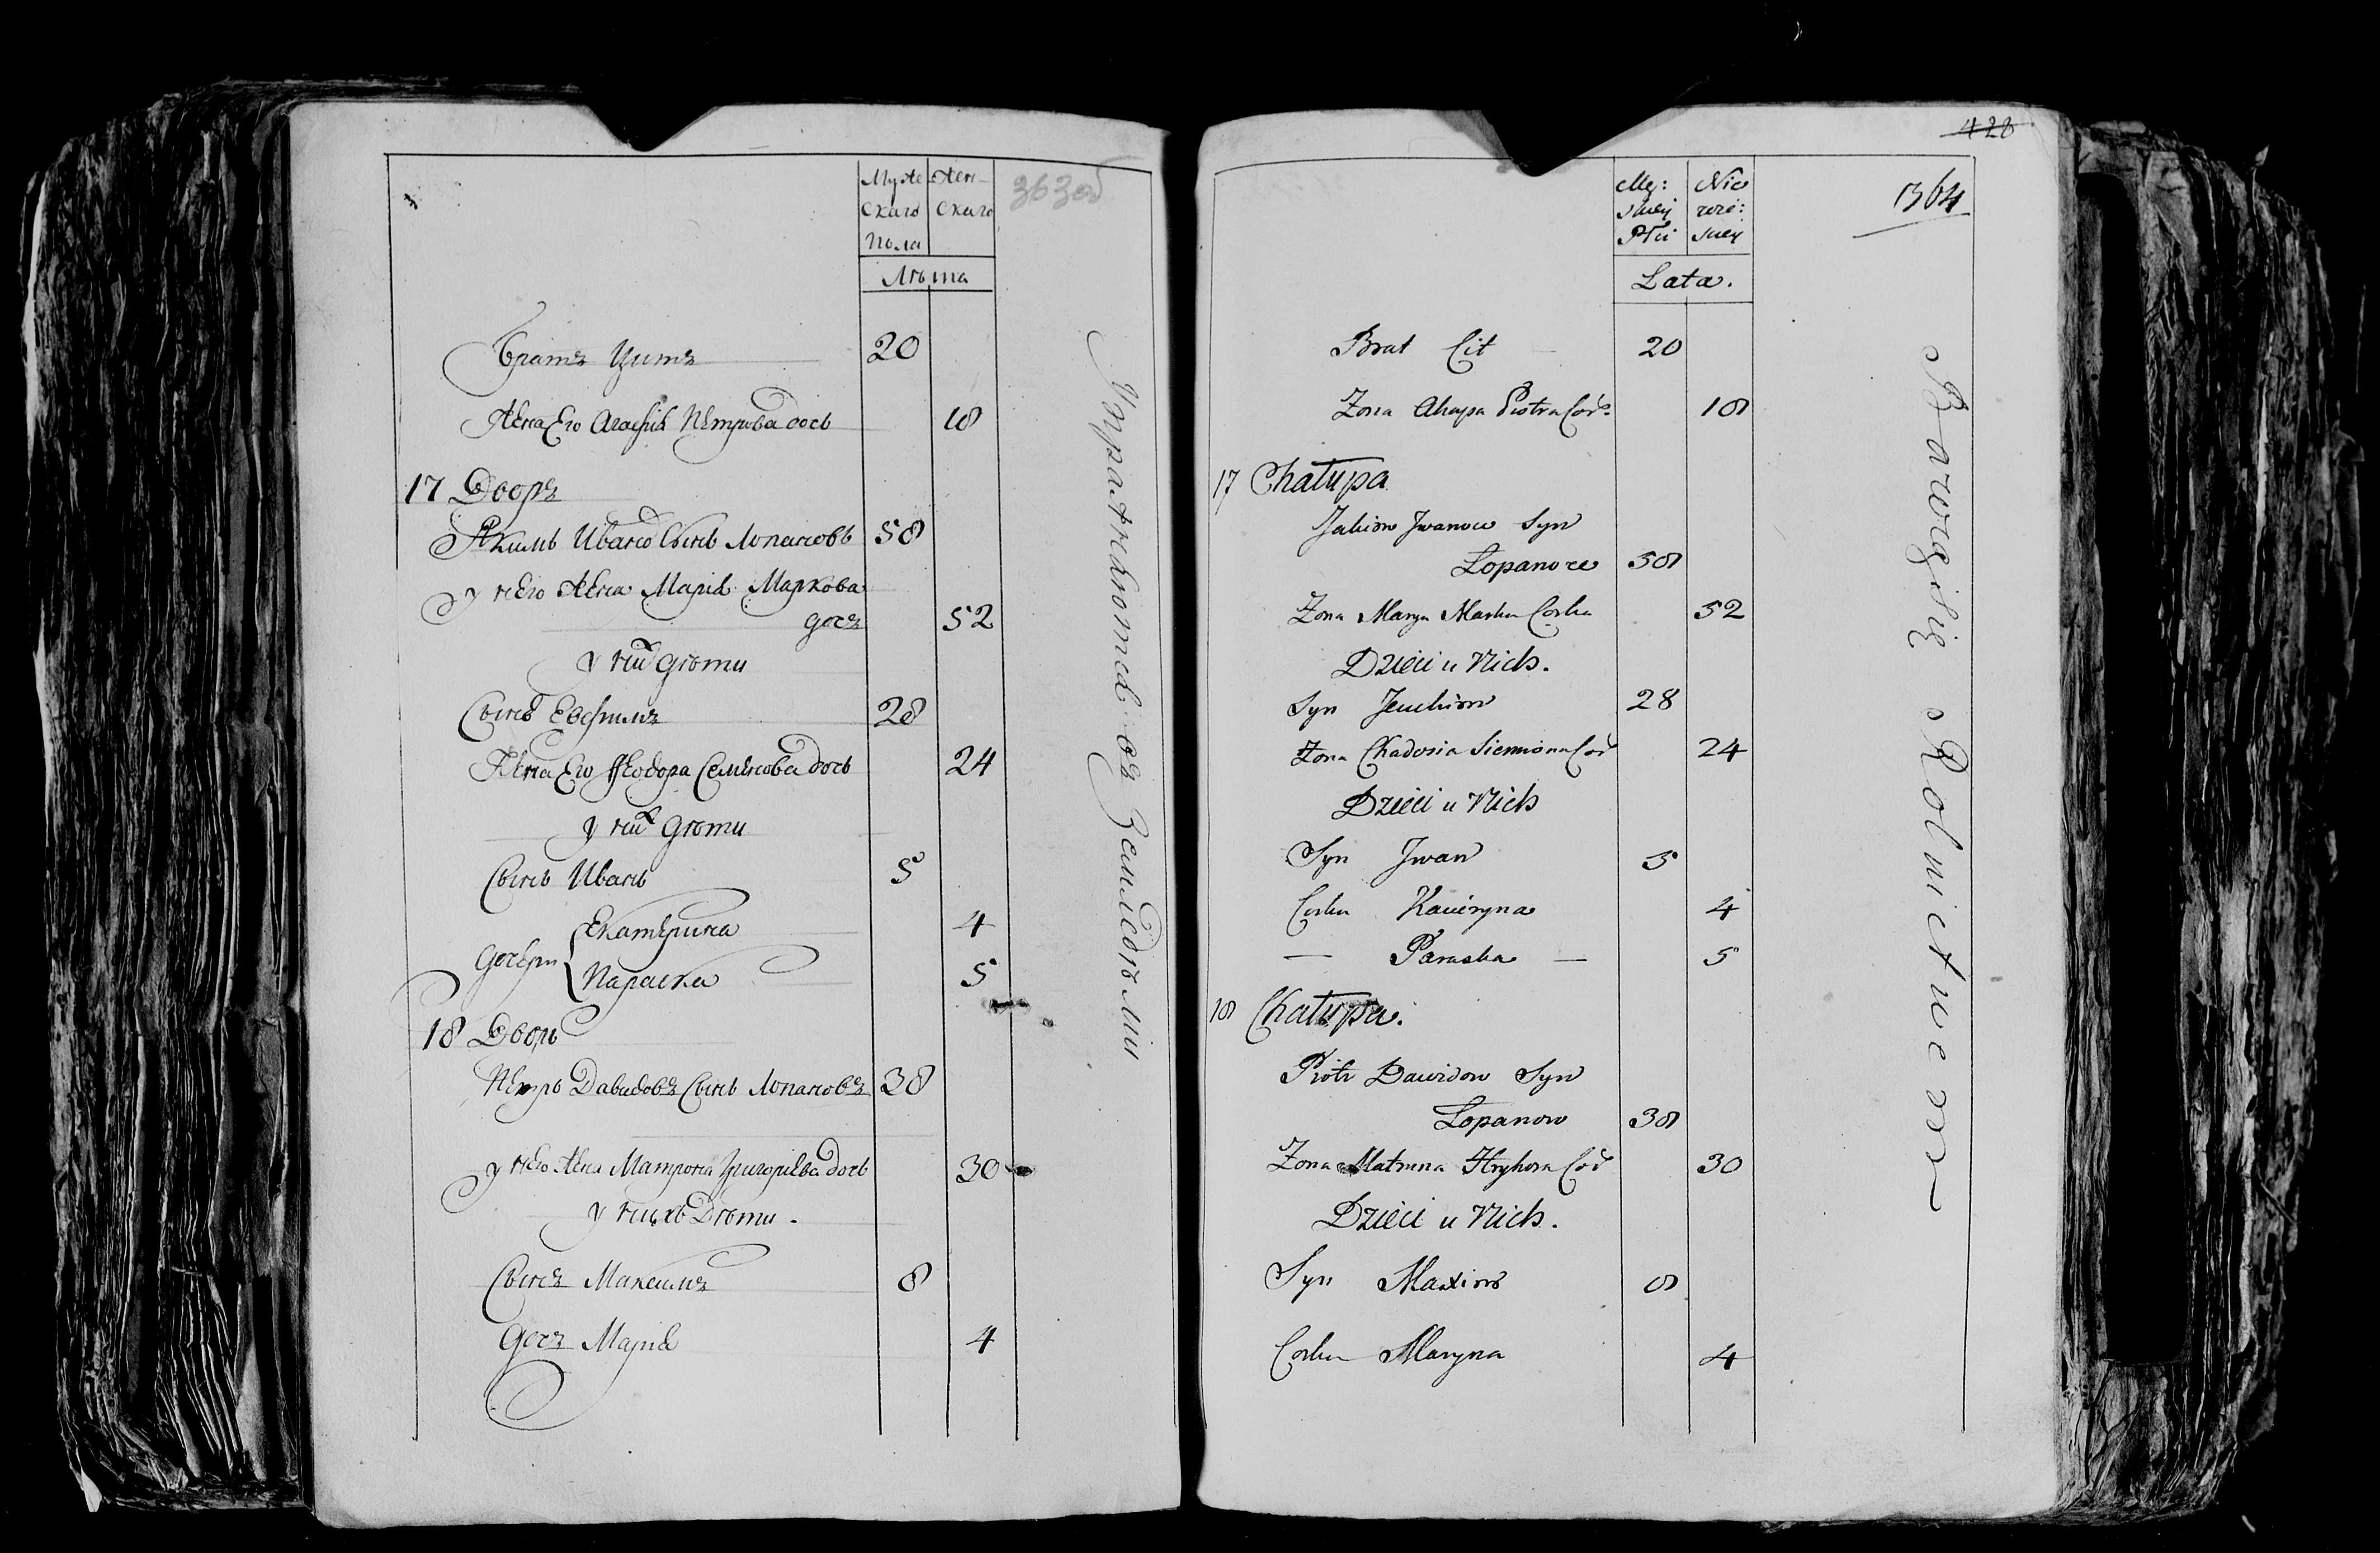 363об
Муже Жен-
скаго скаго
пола
Лѣта
Братъ Цитъ 20
Жена Его Агафия Петрова дочь 18
17 Дворъ
Якимъ Иванов Сынъ Лопановъ 58
у него жена Мария Маркова
дочъ 52
у них дѣти
Сынъ Евфимъ 28
Жена Его Феодора Семенова дочь 24
у них дѣти
Сынъ Иванъ 5
дочери Екатерина 4
Параска 5
18 Дворъ
Петръ Давидовъ Сынъ Лопановъ 38
у него жена Матрона Григориева дочь 30
у нихъ Дѣти.
Сынъ Максимъ 8
дочъ Мария 4
Упражняются въ Земледелии
428
364
Mę: Nie
skiey wie:
Płci skiey
Lata.
Brat Cit 20
Zona Ahapa Piotra Cor: 18
17 Chałupa
Jakim Jwanow Syn
Łopanow 58
Zona Marya Marka Corka 52
Dzieci u Nich.
Syn Jeuchim 28
Zona Chadosia Siemiona Cor 24
Dzieci u Nich
Syn Jwan 5
Corka Kacieryna 4
— Paraska — 5
18 Chałupa.
Piotr Dawidow Syn
Łopanow 38
Zona Matruna Hryhora Cor 30
Dzieci u Nich.
Syn Maxim 8
Corka Maryna 4
Bawią się Rolnictwem